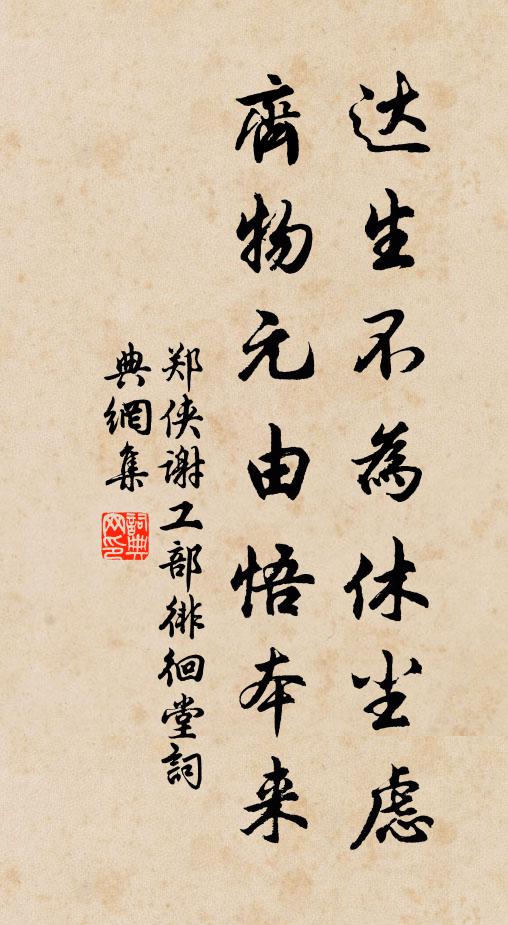 达生不為休尘慮
齊物元由悟本来
郑侠谢工部徘徊堂詞
典網集
詞典
网印